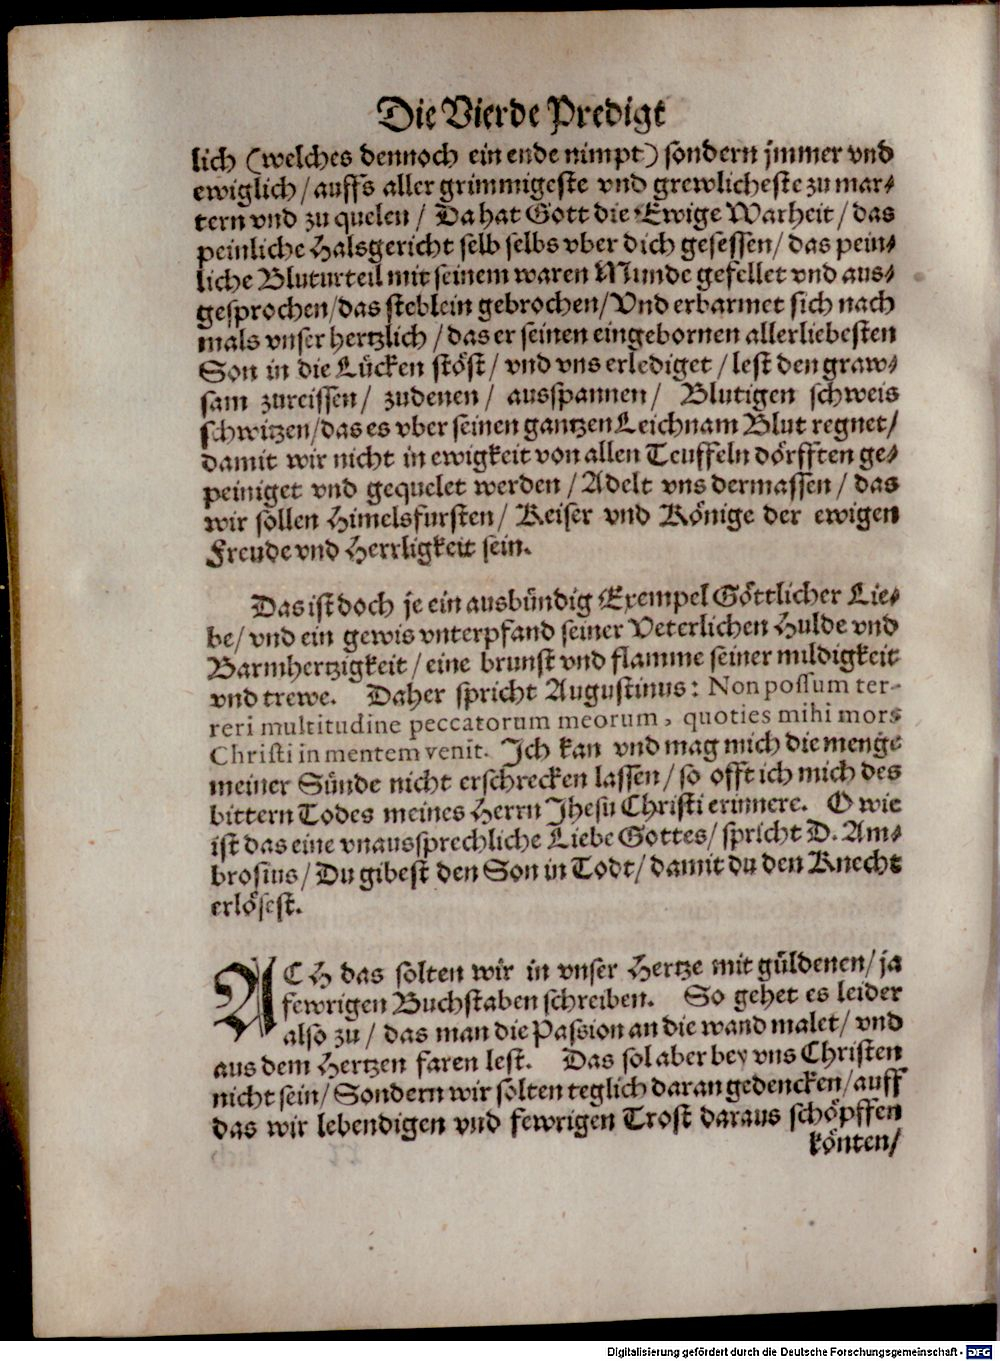 Die Vierde Predigt
lich (welches dennoch ein ende nimpt) sondern jmmer vnd
ewiglich / auffs aller grimmigeste vnd grewlicheste zu mar-
tern vnd zu quelen / Da hat Gott die Ewige Warheit / das
peinliche Halsgericht selb selbs vber dich gesessen / das pein-
liche Bluturteil mit seinem waren Munde gefellet vnd aus-
gesprochen / das steblein gebrochen / Vnd erbarmet sich nach
mals vnser hertzlich / das er seinen eingebornen allerliebesten
Son in die Lücken stöst / vnd vns erlediget / lest den graw-
sam zureissen / zudenen / ausspannen / Blutigen schweis
schwitzen / das es vber seinen gantzen Leichnam Blut regnet /
damit wir nicht in ewigkeit von allen Teuffeln dörfften ge-
peiniget vnd gequelet werden / Adelt vns dermassen / das
wir sollen Himelsfursten / Keiser vnd Könige der ewigen
Freude vnd Herrligkeit sein.
Das ist doch je ein ausbündig Exempel Göttlicher Lie-
be / vnd ein gewis vnterpfand seiner Veterlichen Hulde vnd
Barmhertzigkeit / eine brunst vnd flamme seiner mildigkeit
vnd trewe. Daher spricht Augustinus: Non possum ter-
reri multitudine peccatorum meorum, quoties mihi mors
Christi in mentem venit. Ich kan vnd mag mich die menge
meiner Sünde nicht erschrecken lassen / so offt ich mich des
bittern Todes meines Herrn Jhesu Christi erinnere. O wie
ist das eine vnaussprechliche Liebe Gottes / spricht D. Am-
brosius / Du gibest den Son in Todt / damit du den Knecht
erlösest.
ACH das solten wir in vnser Hertze mit güldenen / ja
fewrigen Buchstaben schreiben. So gehet es leider
also zu / das man die Passion an die wand malet / vnd
aus dem Hertzen faren lest. Das sol aber bey vns Christen
nicht sein / Sondern wir solten teglich daran gedencken / auff
das wir lebendigen vnd fewrigen Trost daraus schöpffen
könten /
Digitalisierung gefördert durch die Deutsche Forschungsgemeinschaft - DFG